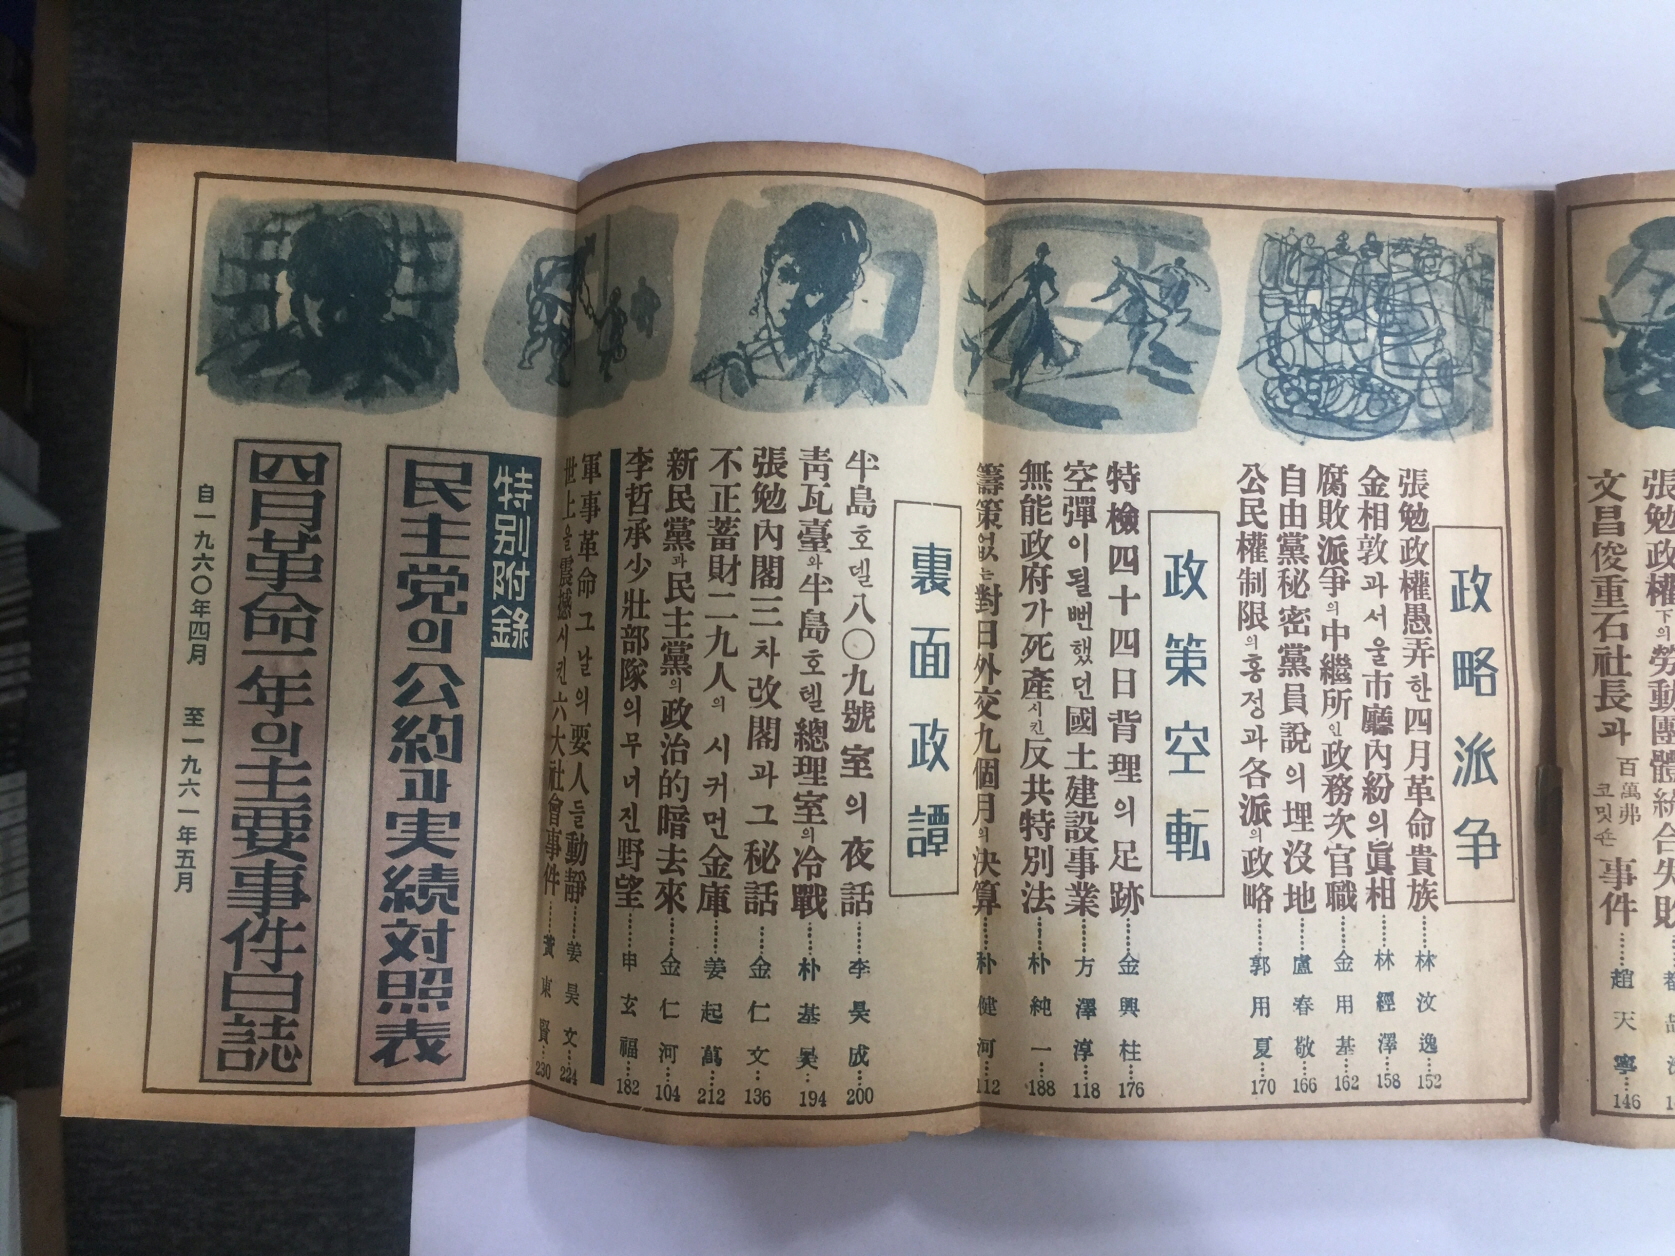 張勉政權下의勞動團體統合失敗
文昌俊重石社長과 百萬弗 코밋숀 事件……趙天寧…146
政略派争
張勉政權愚弄한四月革命貴族……林汶逸…152
金相敦과서울市廳內紛의眞相……林經澤…158
腐敗派爭의中繼所인政務次官職……金用基…162
自由黨秘密黨員說의埋沒地……盧春敬…166
公民權制限의흥정과各派의政略……郭用夏…170
政策空転
特檢四十四日背理의足跡……金興桂…176
空彈이될뻔했던國土建設事業……方澤淳…118
無能政府가死産시킨反共特別法……朴純一…188
籌策없는對日外交九個月의決算……朴健河…112
裏面政譚
半島호델八〇九號室의夜話……李昊成…200
靑瓦臺와半島호텔總理室의冷戰……朴基昊…194
張勉內閣三차改閣과그秘話……金仁文…136
不正蓄財二九人의시커먼金庫……姜起萬…212
新民黨과民主黨의政治的暗去來……金仁河…104
李哲承少壯部隊의무너진野望……申玄福…182
軍事革命그날의要人들動靜……姜昊文…224
世上을震撼시킨六大社會事件……黃東賢…230
特別附錄
民主党의公約과実続対照表
四月革命一年의主要事件日誌
自一九六〇年四月 至一九六一年五月